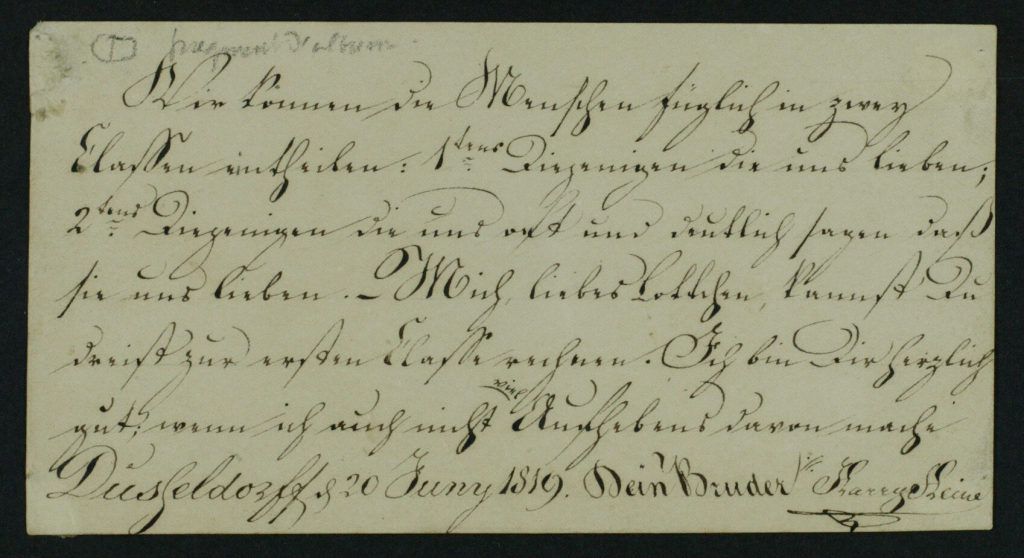 ① fragment d'album.
Wir können die Menschen füglich in zwey
Classen eintheilen: 1tens Diejenigen die uns lieben;
2tens Diejenigen die uns oft und deutlich sagen daß
sie uns lieben. – Mich, liebes Lottchen, kannst Du
dreist zur ersten Classe rechnen. Ich bin Dir herzlich
gut; wenn ich auch nicht viel Aufhebens davon mache
Dusseldorff d 20 Juny 1819. Dein Bruder Harry Heine